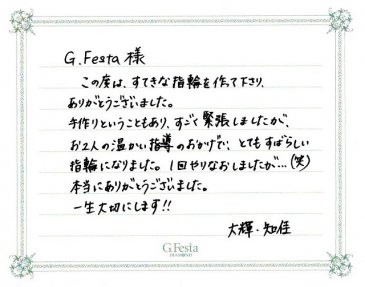 G.Festa 様
この度は、すてきな指輪を作て下さり、
ありがとうございました。
手作りということもあり、すごく緊張しましたが、
お2人の温かい指導のおかげで、とてもすばらしい
指輪になりました。1回やりなおしましたが…(笑)
本当にありがとうございました。
一生大切にします!!
大輝・知佳
G.Festa
DIAMOND